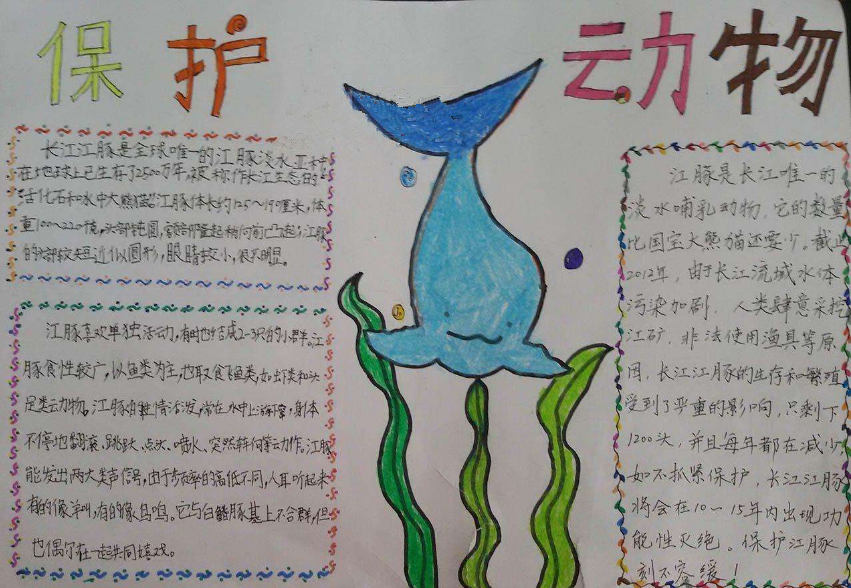 保护动物
长江江豚是全球唯一的江豚淡水亚种
在地球上已生存了2500万年,被称作长江生态的
活化石和水中大熊猫。江豚体长约120~190厘米,体
重100~220千克,头部钝圆,额部隆起稍向前凸起;江豚
的头部较短近似圆形,眼睛较小,很不明显。
江豚喜欢单独活动,有时也结成2~3只的小群。江
豚食性较广,以鱼类为主,也取食虾类和头
足类动物。江豚性情活泼,常在水中上游下窜,身体
不停地翻滚、跳跃、点头、喷水、突然转向等动作。江豚
能发出两大类声信号,由于频率的高低不同,人耳听起来
有的像羊叫,有的像鸟鸣。它与白鳍豚基上不合群,但
也偶尔在一起共同嬉戏。
江豚是长江唯一的
淡水哺乳动物,它的数量
比国宝大熊猫还要少。截止
2012年,由于长江流域水体
污染加剧,人类肆意采挖
江矿,非法使用渔具等原
因,长江江豚的生存和繁殖
受到了严重的影响,只剩下
1200头,并且每年都在减少
如不抓紧保护,长江江豚
将会在10~15年内出现功
能性灭绝。保护江豚
刻不容缓!